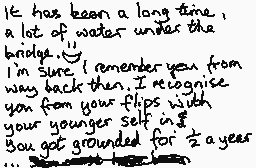 It has been a long time,
a lot of water under the
bridge.
I'm sure I remember you from
way back then. I recognise
you from your flips with
your younger self in it
You got grounded for ½ a year
...